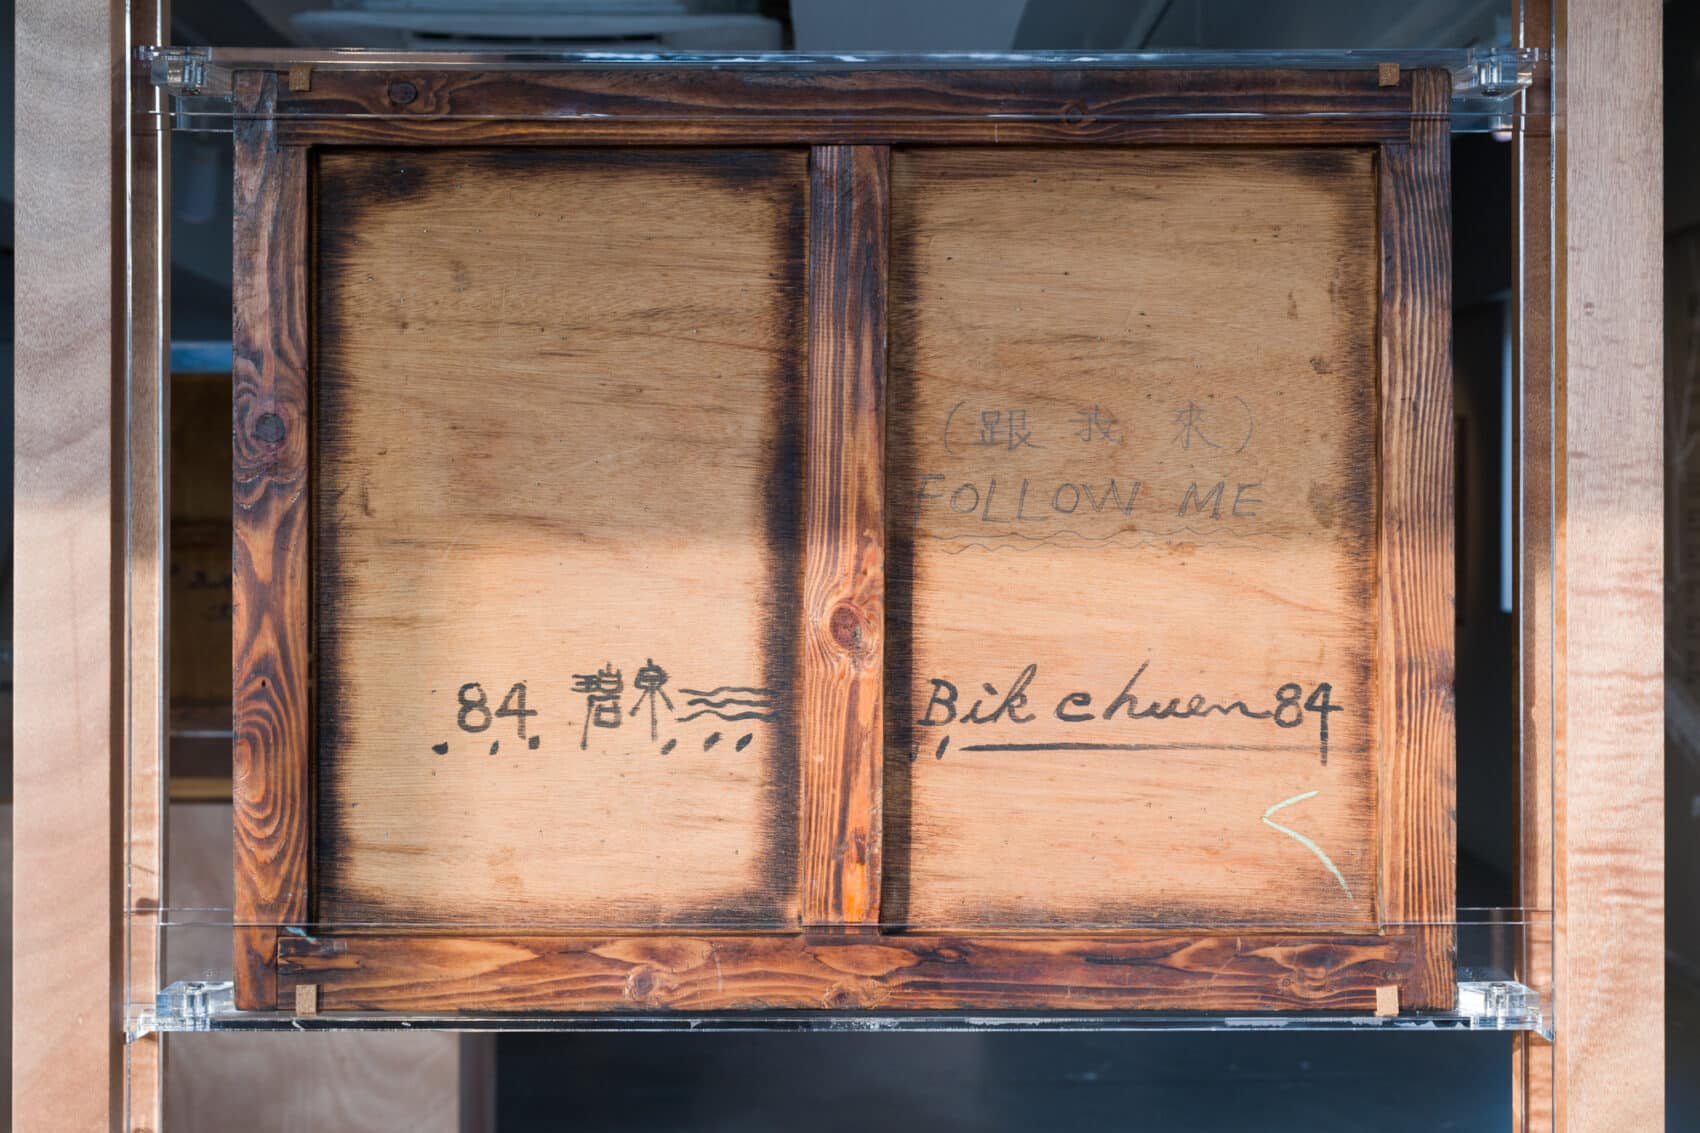 (跟我來)
FOLLOW ME
84 碧泉
Bik chuen 84